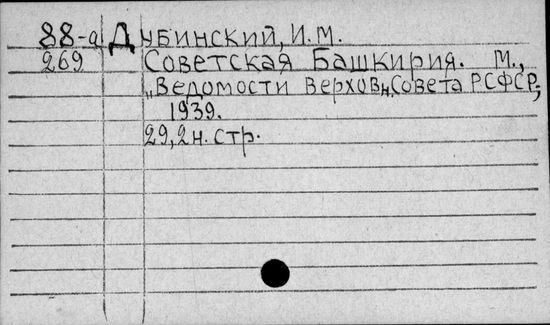 88-а Дубинский, И.М.
269 Советская Башкирия. М.,
„Ведомости Верховн. Совета РСФСР",
1939.
29, 2 н. стр.